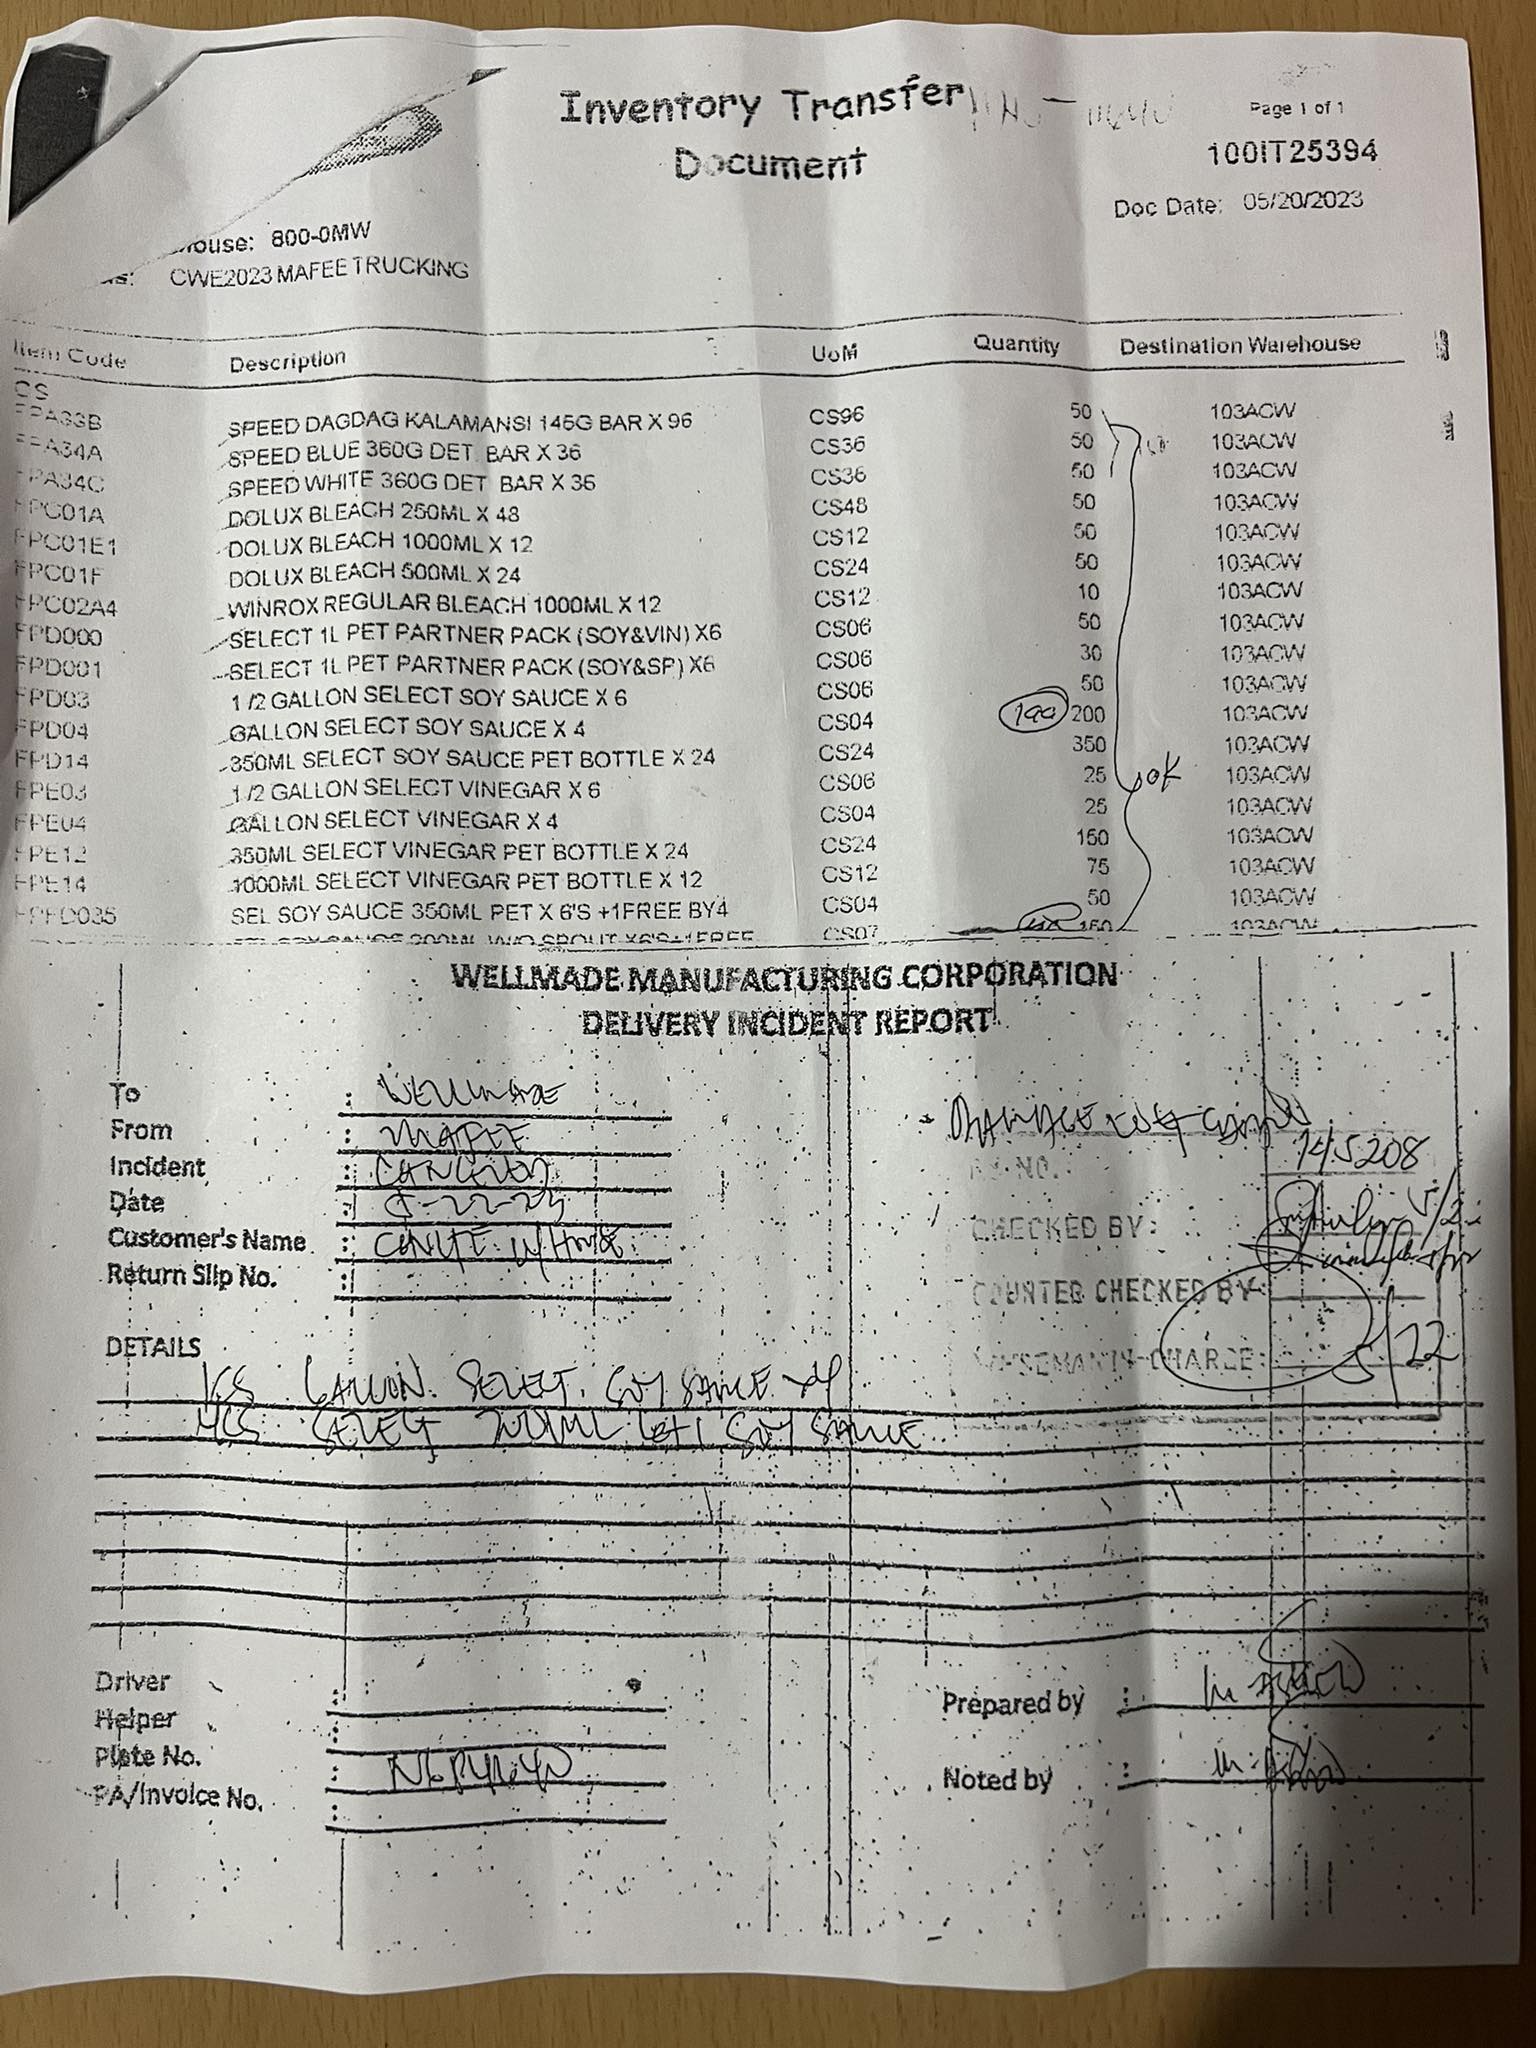 Inventory Transfer
Document
Page 1 of 1
100IT25394
Doc Date: 05/20/2023
800-0MW
CWE2023 MAFEE TRUCKING
Item Code Description UoM Quantity Destination Warehouse
CS
FPA33B SPEED DAGDAG KALAMANSI 145G BAR X 96 CS96 50 103ACW
FPA34A SPEED BLUE 360G DET. BAR X 36 CS36 50 103ACW
FPA34C SPEED WHITE 360G DET BAR X 36 CS36 50 103ACW
FPC01A DOLUX BLEACH 250ML X 48 CS48 50 103ACW
FPC01E1 DOLUX BLEACH 1000ML X 12 CS12 50 103ACW
FPC01F DOLUX BLEACH 500ML X 24 CS24 50 103ACW
FPC02A4 WINROX REGULAR BLEACH 1000ML X 12 CS12 10 103ACW
FPD000 SELECT 1L PET PARTNER PACK (SOY&VIN) X6 CS06 50 103ACW
FPD001 SELECT 1L PET PARTNER PACK (SOY&SP) X6 CS06 30 103ACW
FPD03 1/2 GALLON SELECT SOY SAUCE X 6 CS06 50 103ACW
FPD04 GALLON SELECT SOY SAUCE X 4 CS04 199 200 103ACW
FPD14 350ML SELECT SOY SAUCE PET BOTTLE X 24 CS24 350 103ACW
FPE03 1/2 GALLON SELECT VINEGAR X 6 CS06 25 OK 103ACW
FPE04 GALLON SELECT VINEGAR X 4 CS04 25 103ACW
FPE12 350ML SELECT VINEGAR PET BOTTLE X 24 CS24 150 103ACW
FPE14 1000ML SELECT VINEGAR PET BOTTLE X 12 CS12 75 103ACW
FPFD035 SEL SOY SAUCE 350ML PET X 6'S +1FREE BY4 CS04 50 103ACW
SEL SOY SAUCE 200ML W/O SPOUT X6'S+1FREE CS07 150 103ACW
WELLMADE MANUFACTURING CORPORATION
DELIVERY INCIDENT REPORT
To : WELLMADE
From : MAFEE
Incident :
Date : 5-22-23
Customer's Name : W/HOUSE
Return Slip No. :
DAMAGE
RS NO. 145208
CHECKED BY:
COUNTER CHECKED BY:
WHSEMAN IN-CHARGE: 5/22
DETAILS
1CS GALLON SELECT SOY SAUCE X4
4CS SELECT 200ML 6+1 SOY SAUCE
Driver :
Helper :
Plate No. :
PA/Invoice No. :
Prepared by :
Noted by :